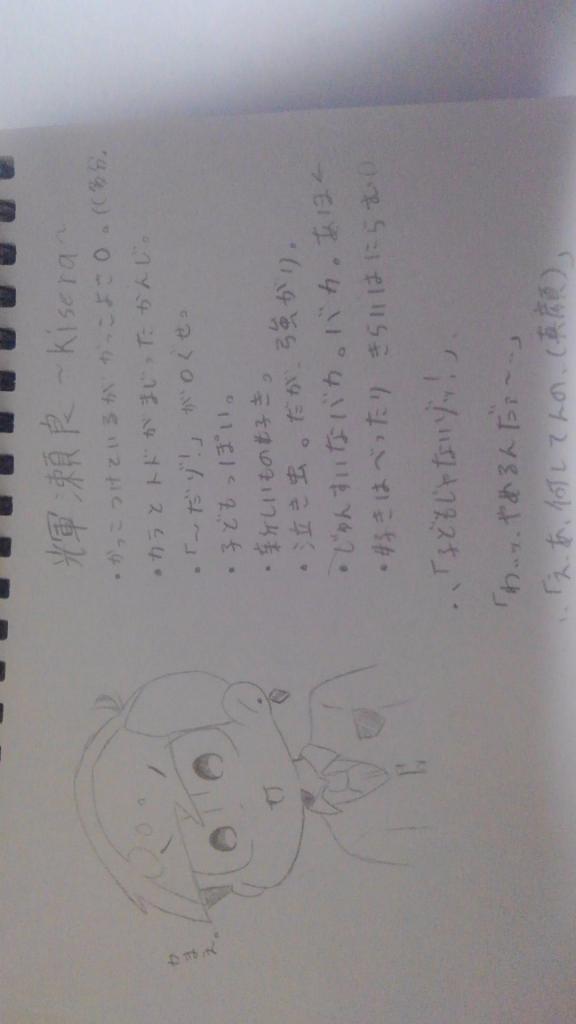 輝瀬良 ～Kisera～
・かっこつけているがかっこよさ0。(多分。
・カラとトドがまじったかんじ。
・「～だゾ!」が口ぐせ。
・子どもっぽい。
・楽しいもの好き。
・泣き虫。だが、強がり。
・じゅんすいなバカ。バカ。あほく
・好きはべったりきらいはにらむ
・、「子どもじゃないゾッ!」、
「わッっ、やめるんだぁ～‥」
、「え、あ、何してんの、(真顔)」
かまえ。